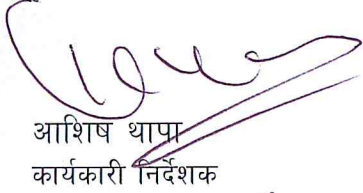 आशिष थापा
कार्यकारी निर्देशक